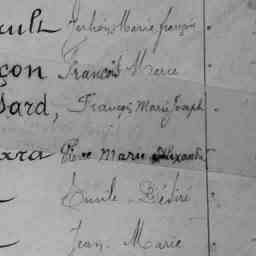 ault Marie françois
çon François Marie
sard, François Marie Joseph
Marie Alexandre
Emile Désiré
Jean Marie